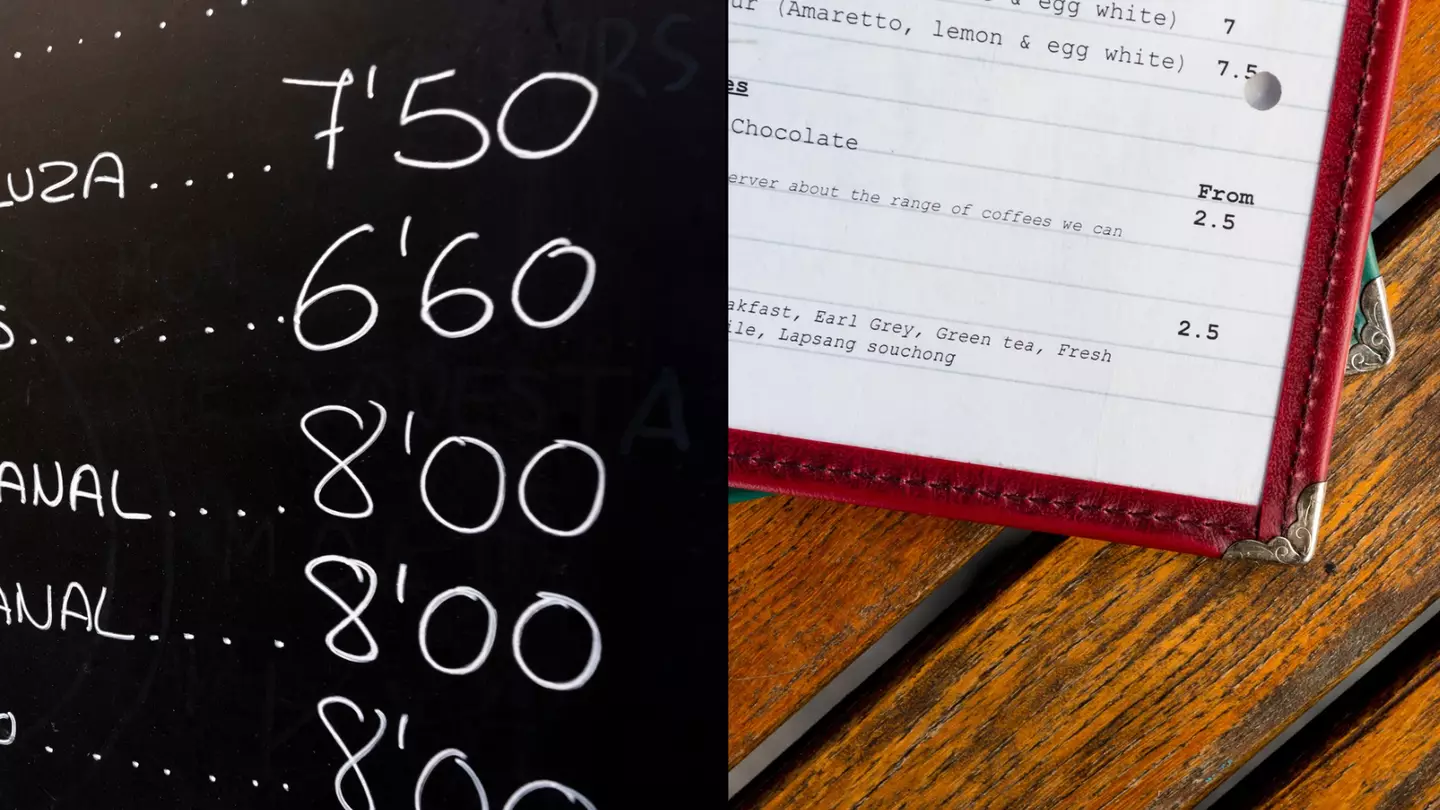 7'50
LUZA.....
6'60
S.......
8'00
ANAL.....
8'00
ANAL.....
8'00
O.......
& egg white) 7
ur (Amaretto, lemon & egg white) 7.5
es
Chocolate
From
erver about the range of coffees we can 2.5
akfast, Earl Grey, Green tea, Fresh 2.5
ile, Lapsang souchong